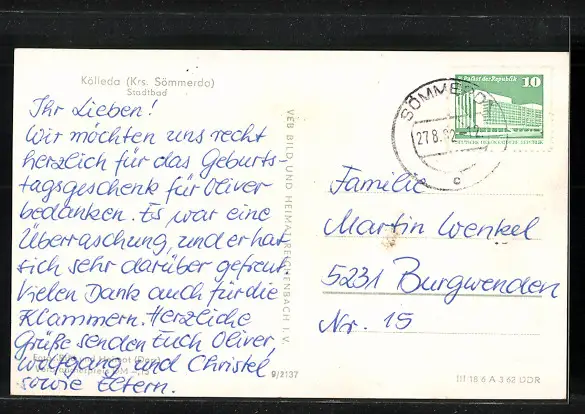 Kölleda (Krs. Sömmerda)
Stadtbad
Ihr Lieben!
Wir möchten uns recht
herzlich für das Geburts-
tagsgeschenk für Oliver
bedanken. Es war eine
Überraschung, und er hat
sich sehr darüber gefreut.
Vielen Dank auch für die
Klammern. Herzliche
Grüße senden Euch Oliver,
Wolfgang und Christel
sowie Eltern.
9/2137
VEB BILD UND HEIMAT REICHENBACH I. V.
Palast der Republik 10
DEUTSCHE DEMOKRATISCHE REPUBLIK
SÖMMERDA
27.8.82
c
Familie
Martin Wenkel
5231 Burgwenden
Nr. 15
III 18 6 A 3 62 DDR